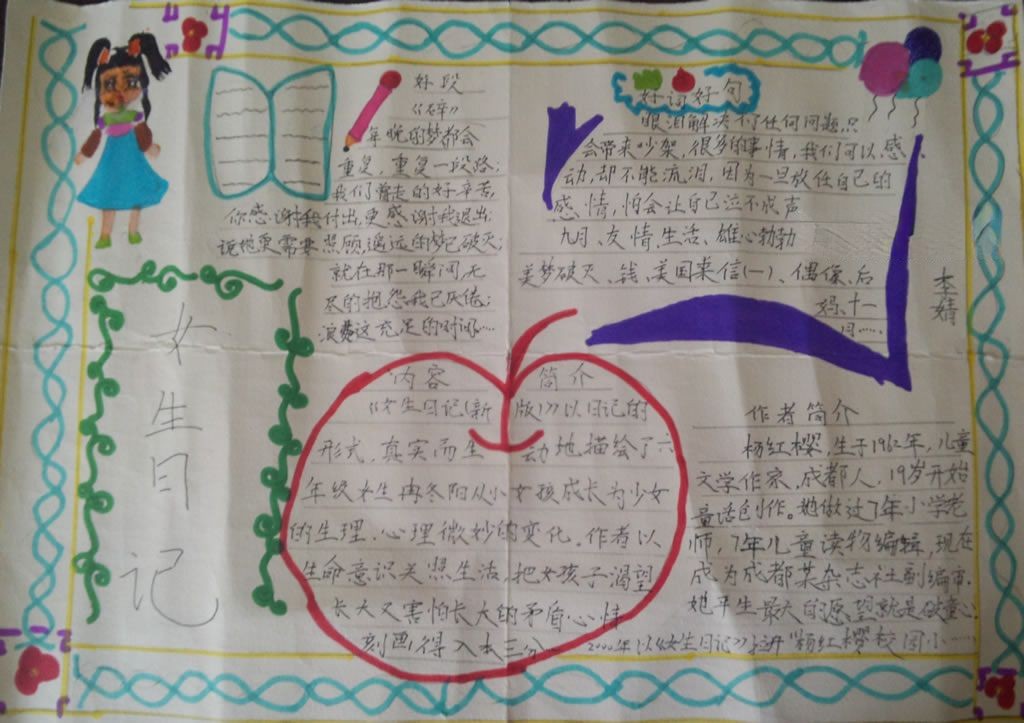 好段
《碎》
年晚的梦都会
重复，重复一段路；
我们曾走的好辛苦，
你感谢我付出，更感谢我退出；
说她更需要照顾，遥远的梦已破灭；
就在那一瞬间，无
尽的抱怨我已厌倦；
浪费这充足的时间……
好词好句
眼泪解决不了任何问题，只
会带来吵架，很多的事情，我们可以感
动，却不能流泪，因为一旦放任自己的
感情，怕会让自己泣不成声
九月、友情、生活、雄心勃勃
美梦破灭、钱、美国来信(一)、偶像、后
妈、十一
月……
李婧
女
生
日
记
内容简介
《女生日记(新版)》以日记的
形式，真实而生动地描绘了六
年级女生冉冬阳从小女孩成长为少女
的生理、心理微妙的变化。作者以
生命意识关照生活，把女孩子渴望
长大又害怕长大的矛盾心情
刻画得入木三分
作者简介
杨红樱，生于1962年，儿童
文学作家，成都人，19岁开始
童话创作。她做过7年小学老
师，7年儿童读物编辑，现在
成为成都某杂志社副编审.
她平生最大的愿望就是破童心
2000年以《女生日记》拉开“杨红樱校园小……